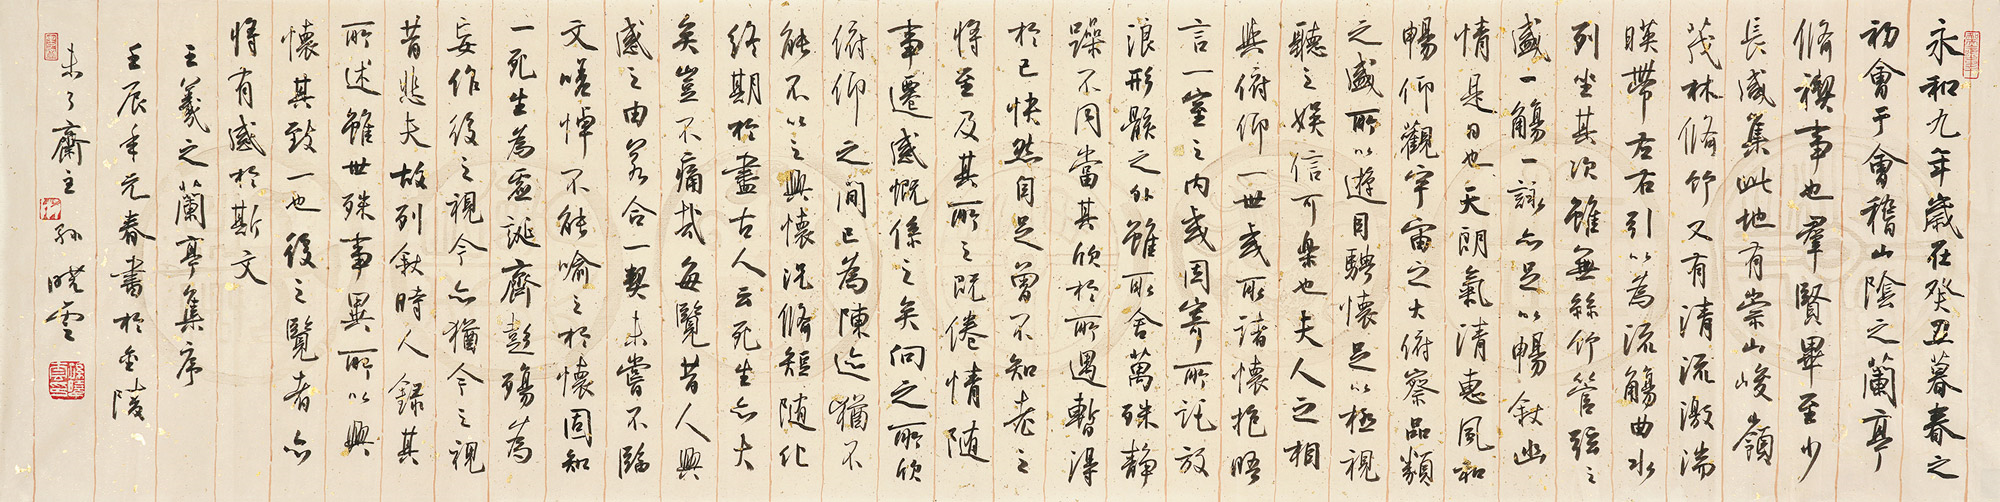 永和九年歲在癸丑暮春之
初會于會稽山陰之蘭亭
脩禊事也羣賢畢至少
長咸集此地有崇山峻嶺
茂林脩竹又有清流激湍
暎帶左右引以為流觴曲水
列坐其次雖無絲竹管弦之
盛一觴一詠亦足以暢敘幽
情是日也天朗氣清惠風和
暢仰觀宇宙之大俯察品類
之盛所以遊目騁懷足以極視
聽之娛信可樂也夫人之相
與俯仰一世或取諸懷抱晤
言一室之內或因寄所託放
浪形骸之外雖取舍萬殊靜
躁不同當其欣於所遇暫得
於己快然自足曾不知老之
將至及其所之既倦情隨
事遷感慨係之矣向之所欣
俯仰之間已為陳迹猶不
能不以之興懷況脩短隨化
終期於盡古人云死生亦大
矣豈不痛哉每覽昔人興
感之由若合一契未嘗不臨
文嗟悼不能喻之於懷固知
一死生為虛誕齊彭殤為
妄作後之視今亦猶今之視
昔悲夫故列敘時人錄其
所述雖世殊事異所以興
懷其致一也後之覽者亦
將有感於斯文
王羲之蘭亭集序
壬辰年元春書於金陵
未了齋主孫曉雲